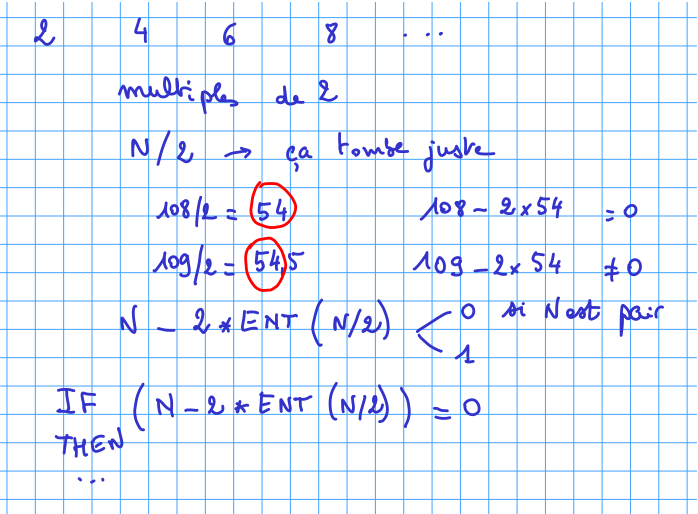 2 4 6 8 ...
multiples de 2
N/2 → ça tombe juste
108/2 = 54 108 - 2 x 54 = 0
109/2 = 54,5 109 - 2 x 54 ≠ 0
N - 2 * ENT (N/2) < 0 si N est pair
1
IF (N - 2 * ENT (N/2)) = 0
THEN
...